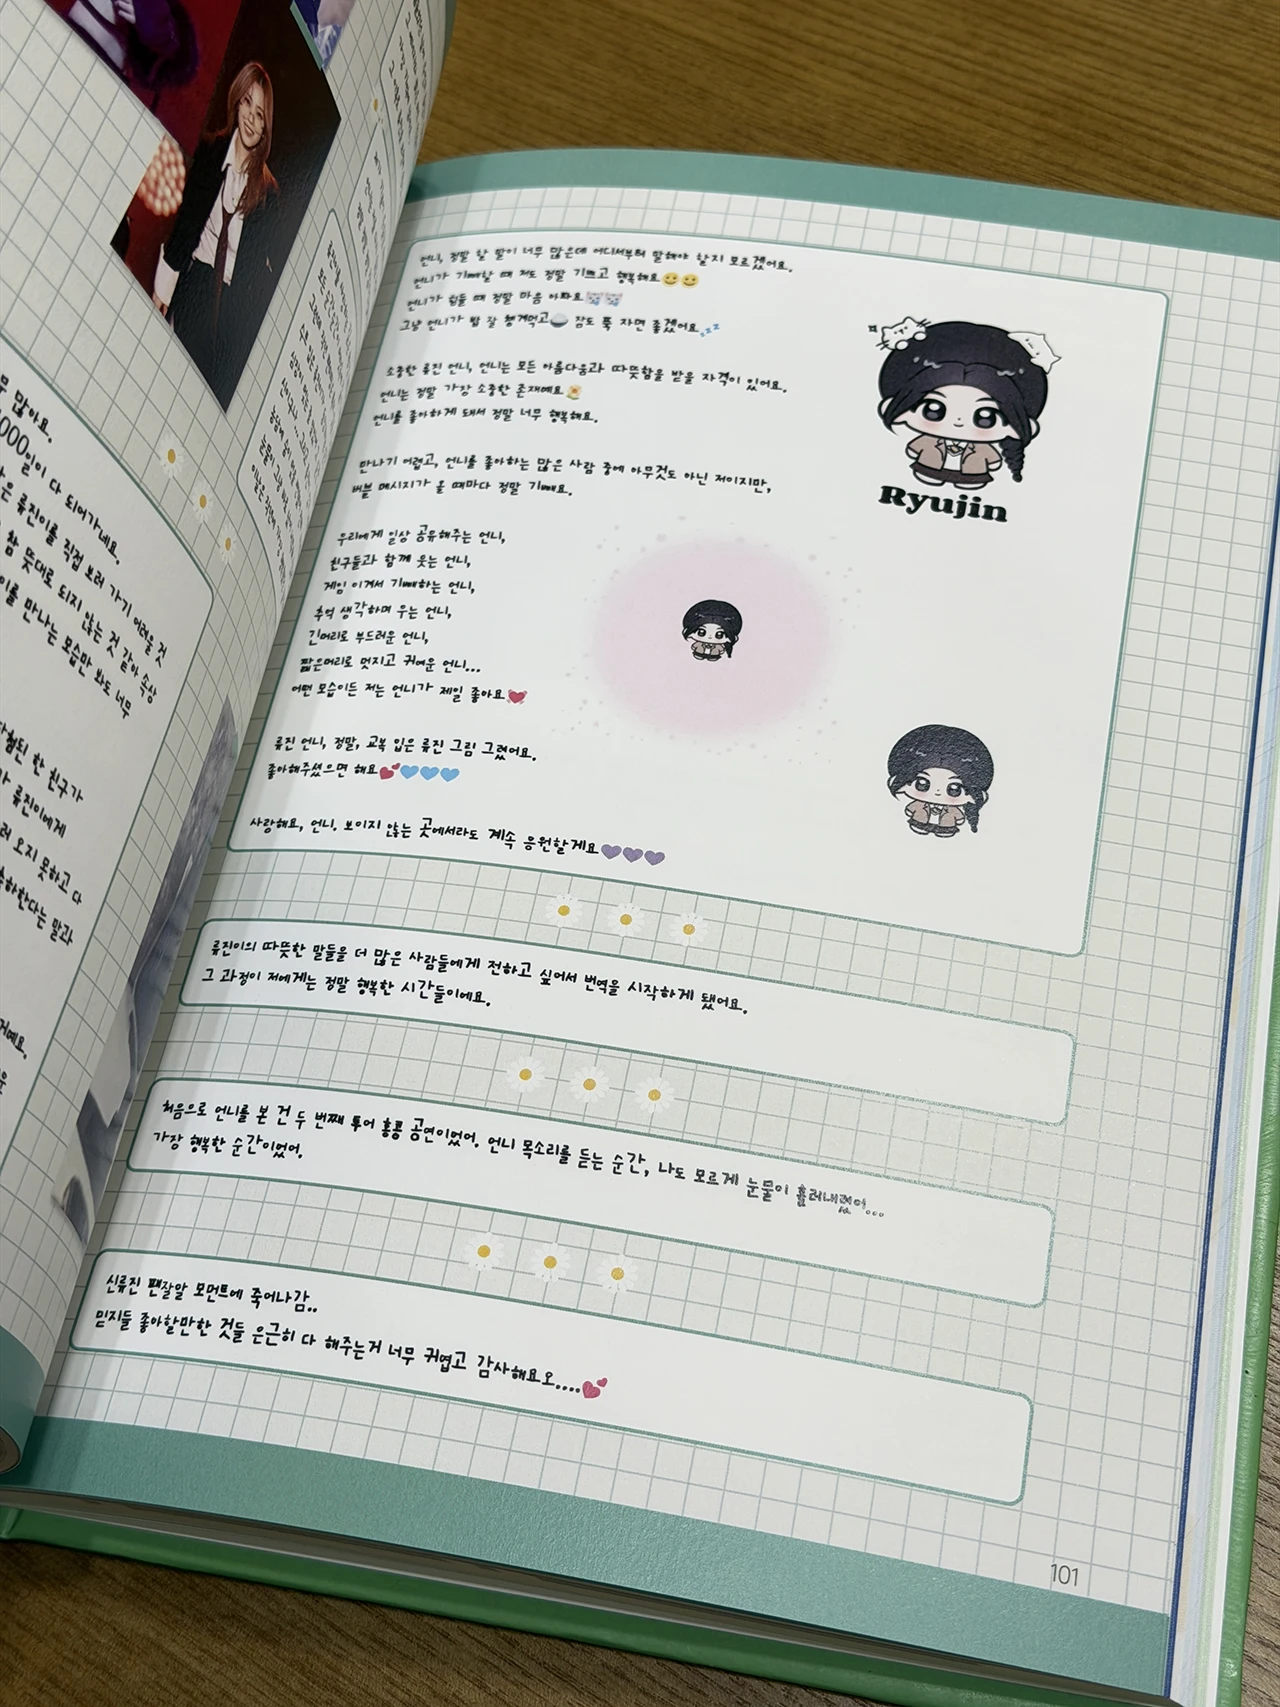 무 많아요.
000일이 다 되어가네요.
은 류진이를 직접 보러 가기 어려울 것
참 뜻대로 되지 않는 것 같아 속상
이를 만나는 모습만 봐도 너무
한 친구가
가 류진이에게
러 오지 못하고 다
속하한다는 말과
거예요.
언니, 정말 할 말이 너무 많은데 어디서부터 말해야 할지 모르겠어요.
언니가 기뻐할 때 저도 정말 기쁘고 행복해요😊😊
언니가 힘들 때 정말 마음 아파요😿😿
그냥 언니가 밥 잘 챙겨먹고🍚 잠도 푹 자면 좋겠어요💤
소중한 류진 언니, 언니는 모든 아름다움과 따뜻함을 받을 자격이 있어요.
언니는 정말 가장 소중한 존재예요🌼
언니를 좋아하게 돼서 정말 너무 행복해요.
만나기 어렵고, 언니를 좋아하는 많은 사람 중에 아무것도 아닌 저이지만,
버블 메시지가 올 때마다 정말 기뻐요.
우리에게 일상 공유해주는 언니,
친구들과 함께 웃는 언니,
게임 이겨서 기뻐하는 언니,
추억 생각하며 우는 언니,
긴머리로 부드러운 언니,
짧은머리로 멋지고 귀여운 언니...
어떤 모습이든 저는 언니가 제일 좋아요💓
류진 언니, 정말, 교복 입은 류진 그림 그렸어요.
좋아해주셨으면 해요💕🩵🩵🩵
사랑해요, 언니. 보이지 않는 곳에서라도 계속 응원할게요💜💜💜
Ryujin
류진이의 따뜻한 말들을 더 많은 사람들에게 전하고 싶어서 번역을 시작하게 됐어요.
그 과정이 저에게는 정말 행복한 시간들이에요.
처음으로 언니를 본 건 두 번째 투어 홍콩 공연이었어. 언니 목소리를 듣는 순간, 나도 모르게 눈물이 흘러내렸어...
가장 행복한 순간이었어.
신류진 팬잘알 모먼트에 죽어나감..
믿지들 좋아할만한 것들 은근히 다 해주는거 너무 귀엽고 감사해요오....💕
101